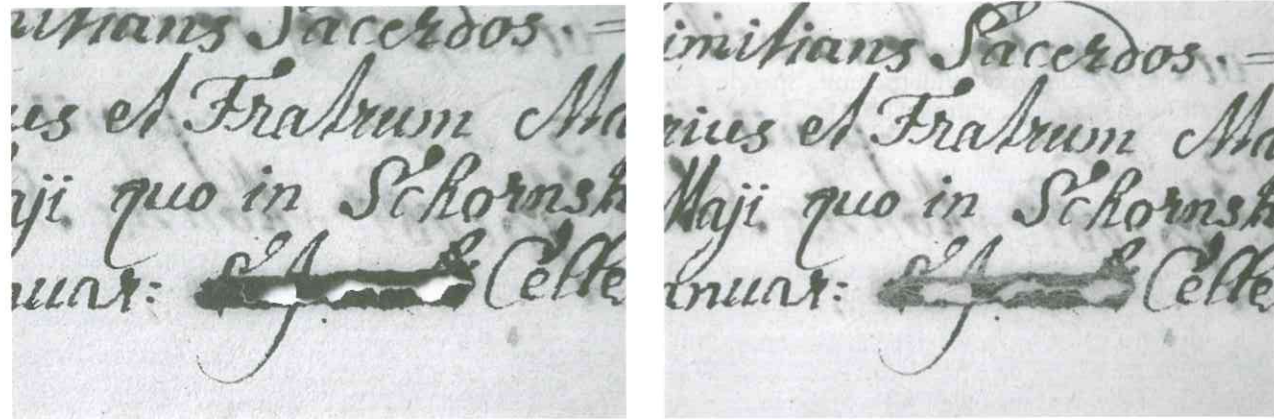 mitians Sacerdos. =
us et Fratrum Ma
aji quo in Schornsh
nuar: Celle
imitians Sacerdos. =
rius et Fratrum Ma
Maji quo in Schornsh
anuar: Celle